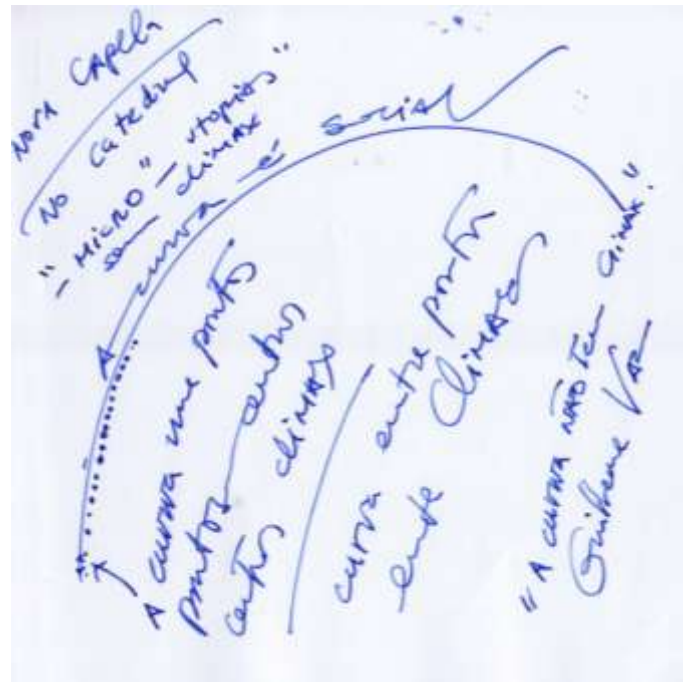 NOVA CAPELA
NO catedral
"- MICRO" - utopias"
sem climax
A curva é social
A curva une pontos
pontos centros
centros climax
curva entre pontos
entre climax
"A curva NÃO Tem Climax."
Guilherme Vaz